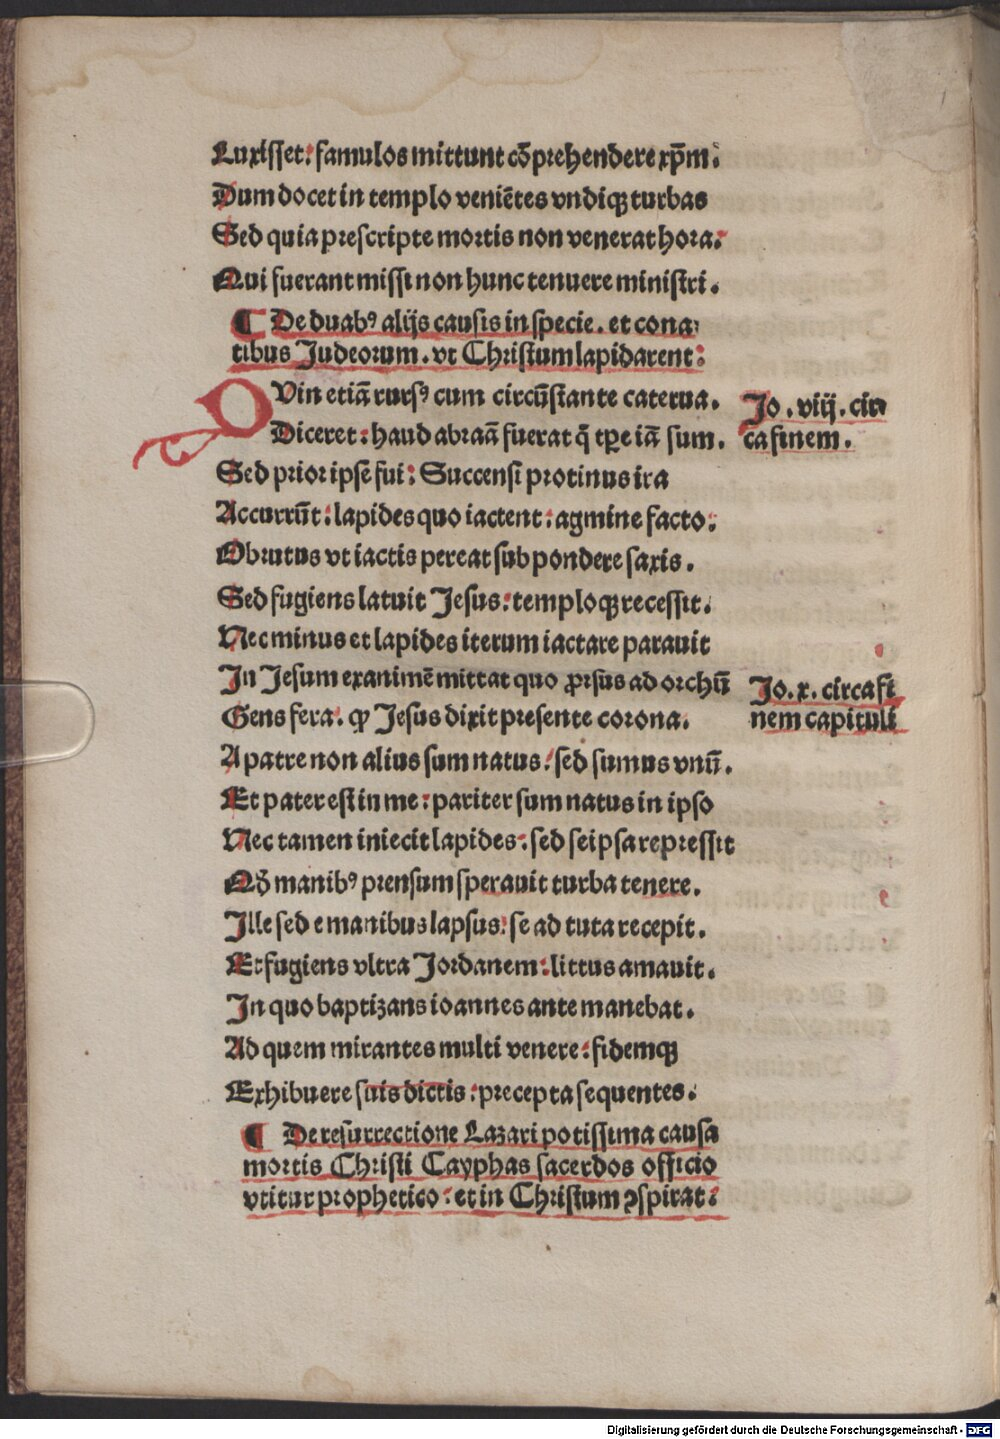 Luxisset: famulos mittunt cōprehendere xp̄m.
Dum docet in templo veniētes vndiqꝫ turbas
Sed quia prescripte mortis non venerat hora.
Qui fuerant missi non hunc tenuere ministri.
¶ De duabꝰ alijs causis in specie. et cona
tibus Judeorum. vt Christum lapidarent:
QVin etiā rursꝰ cum circūstante caterua.
Diceret: haud abraā fuerat q̄ tꝑe iā sum.
Jo. viij. cir
ca finem.
Sed prior ipse fui: Succensi protinus ira
Accurrūt: lapides quo iactent: agmine facto:
Obrutus vt iactis pereat sub pondere saxis.
Sed fugiens latuit Jesus: temploqꝫ recessit.
Nec minus et lapides iterum iactare parauit
In Jesum exanimē mittat quo ꝓrsus ad orchū
Gens fera. ꝙ Jesus dixit presente corona.
Jo. x. circa fi
nem capituli
A patre non alius sum natus: sed sumus vnū.
Et pater est in me: pariter sum natus in ipso
Nec tamen iniecit lapides: sed seipsa repressit
Qđ manibꝰ prensum sperauit turba tenere.
Ille sed e manibus lapsus: se ad tuta recepit.
Et fugiens vltra Jordanem: littus amauit.
In quo baptizans ioannes ante manebat.
Ad quem mirantes multi venere: fidemqꝫ
Exhibuere suis dictis: precepta sequentes.
¶ De resurrectione Lazari potissima causa
mortis Christi Cayphas sacerdos officio
vtitur prophetico: et in Christum ꝯspirat:
Digitalisierung gefördert durch die Deutsche Forschungsgemeinschaft - DFG